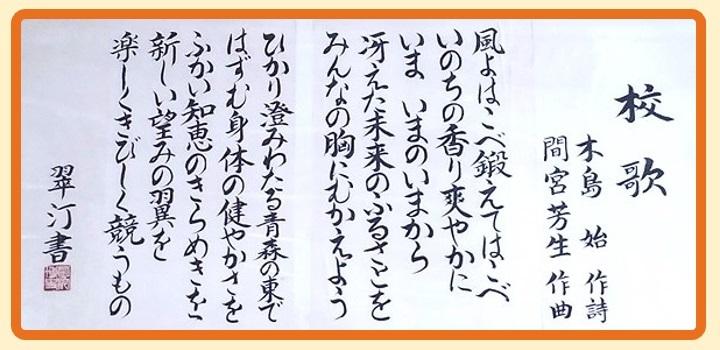 校歌
木島 始 作詩
間宮芳生 作曲
風よはこべ鍛えてはこべ
いのちの香り爽やかに
いま いまのいまから
冴えた未来のふるさとを
みんなの胸にむかえよう
ひかり澄みわたる青森の東で
はずむ身体の健やかさを
ふかい知恵のきらめきを
新しい望みの翼を
楽しくきびしく競うもの
翠汀書